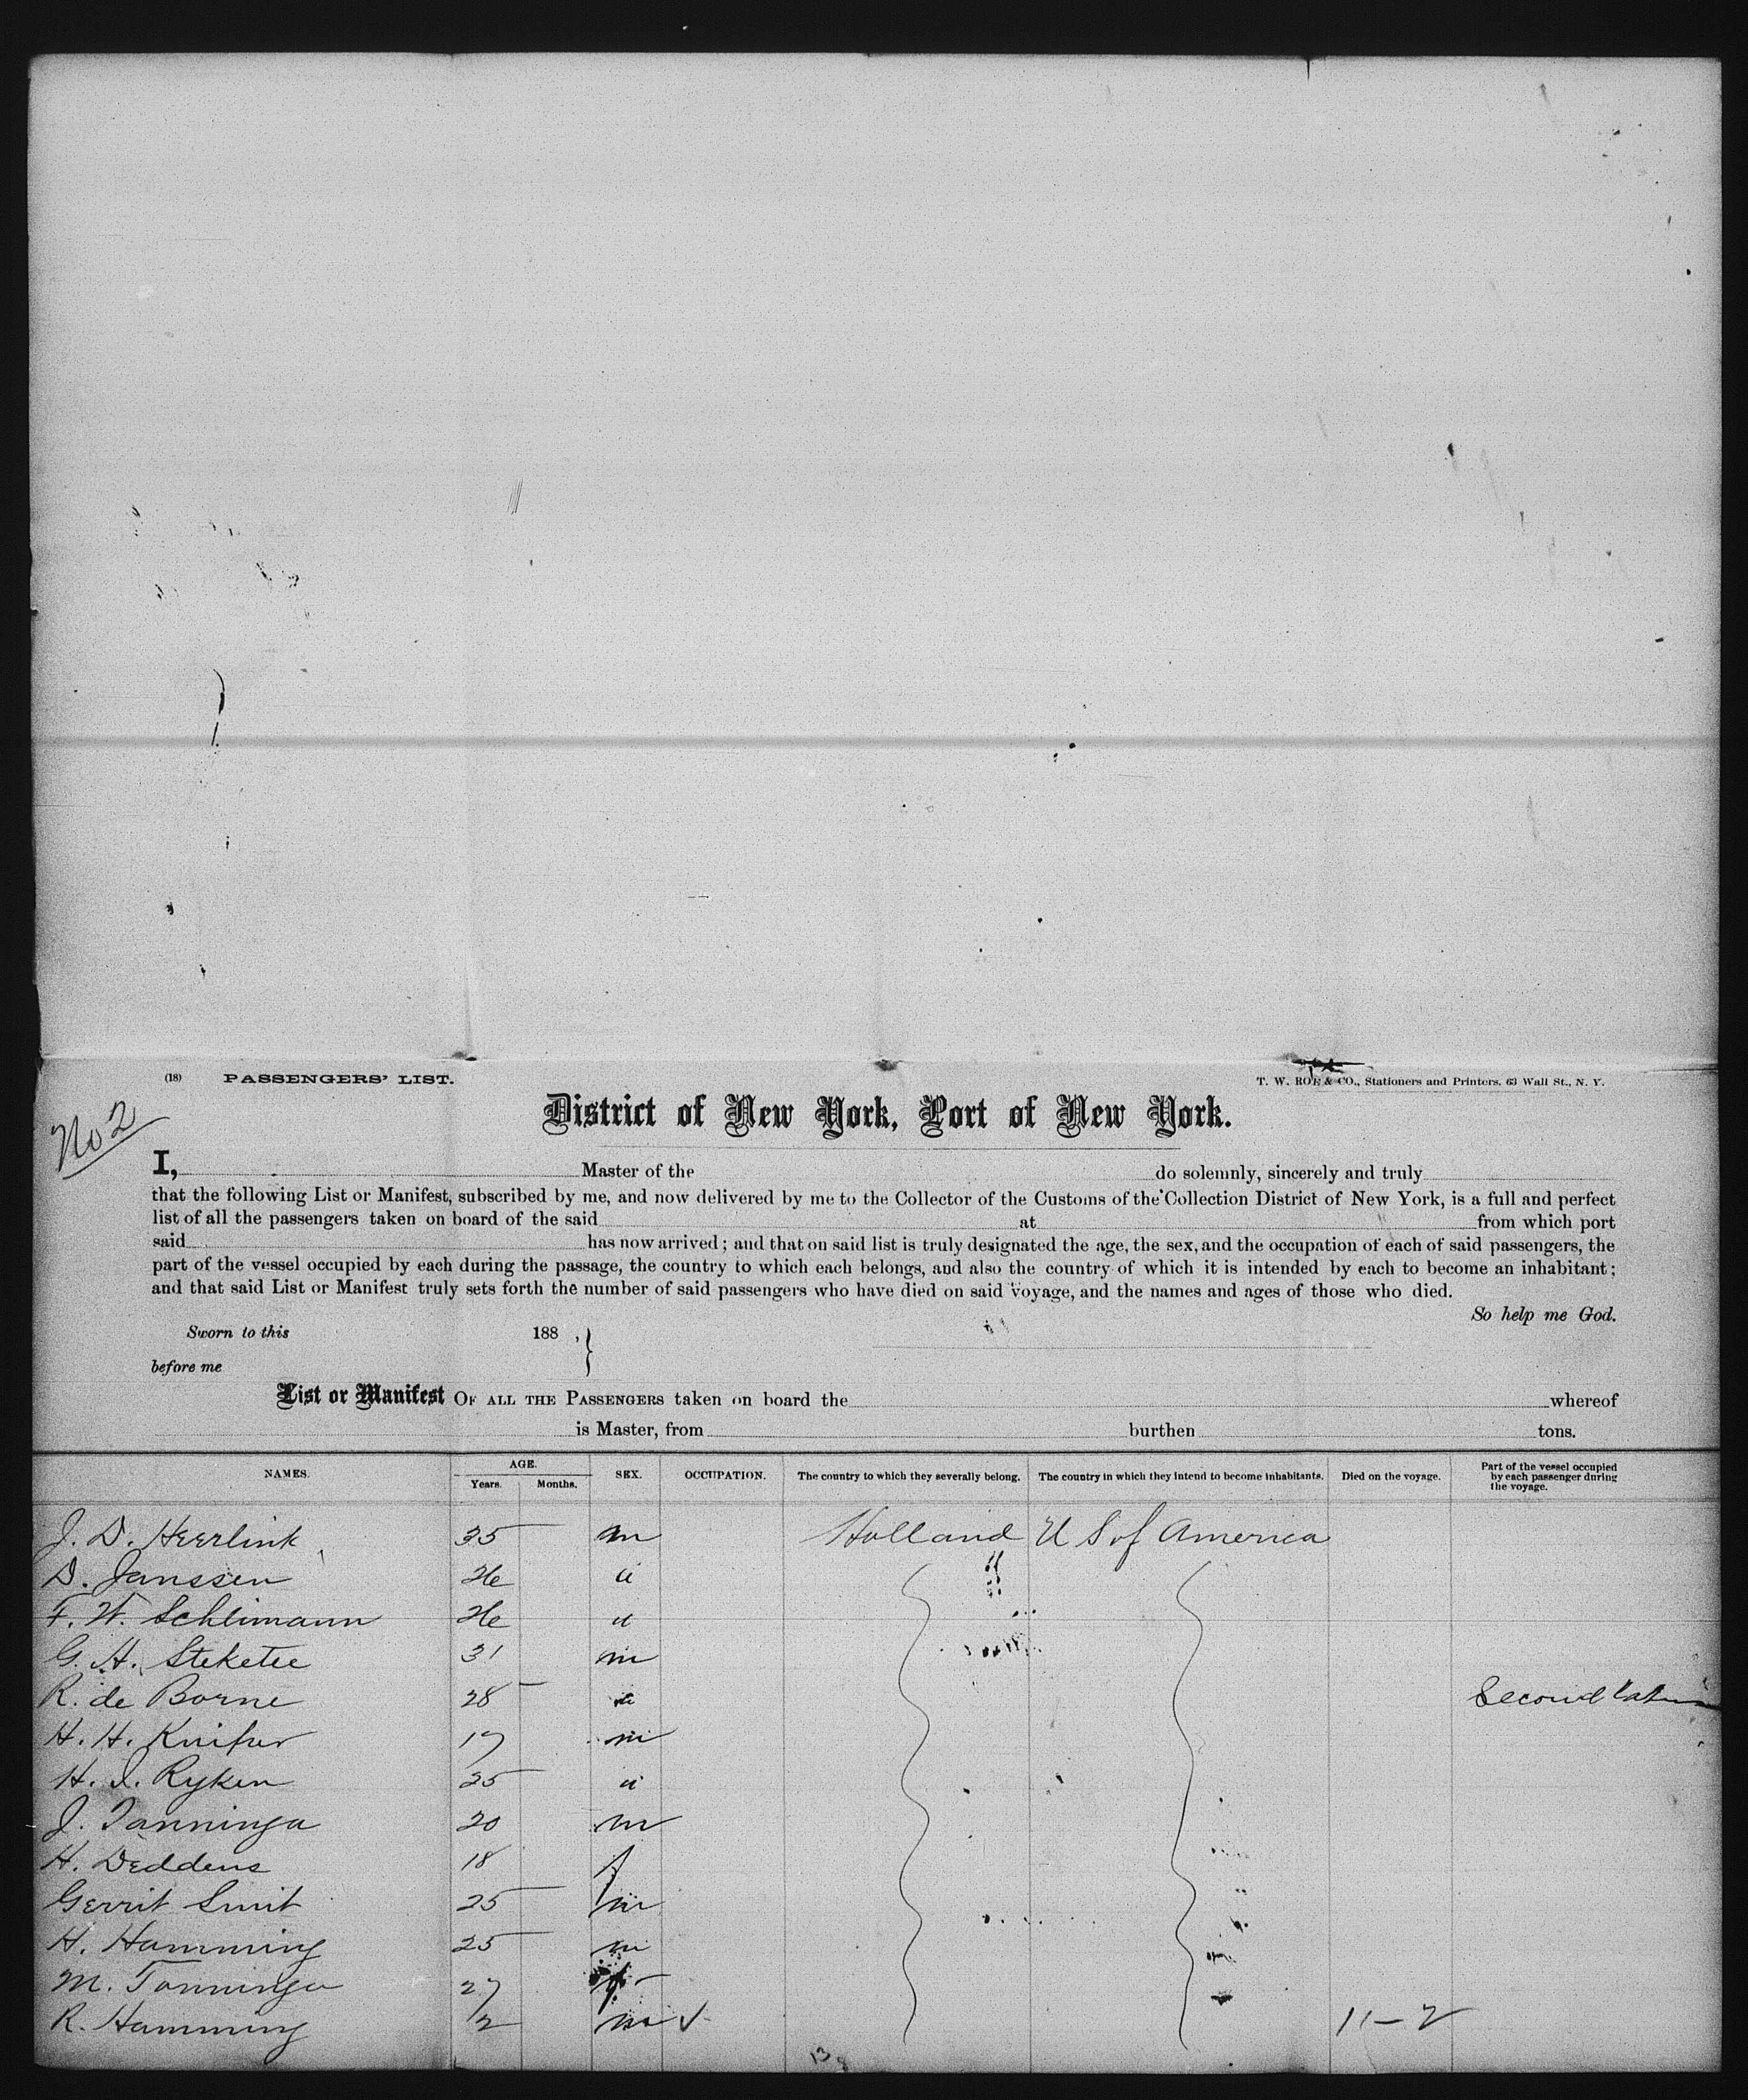 (18) PASSENGERS' LIST. T. W. ROE & CO., Stationers and Printers, 63 Wall St., N. Y.
No 2
District of New York, Port of New York.
I, Master of the do solemnly, sincerely and truly
that the following List or Manifest, subscribed by me, and now delivered by me to the Collector of the Customs of the Collection District of New York, is a full and perfect
list of all the passengers taken on board of the said at from which port
said has now arrived; and that on said list is truly designated the age, the sex, and the occupation of each of said passengers, the
part of the vessel occupied by each during the passage, the country to which each belongs, and also the country of which it is intended by each to become an inhabitant;
and that said List or Manifest truly sets forth the number of said passengers who have died on said voyage, and the names and ages of those who died.
So help me God.
Sworn to this 188 ,
before me
List or Manifest OF ALL THE PASSENGERS taken on board the whereof
is Master, from burthen tons.
NAMES. AGE. Years. Months. SEX. OCCUPATION. The country to which they severally belong. The country in which they intend to become inhabitants. Died on the voyage. Part of the vessel occupied by each passenger during the voyage.
J. D. Heerlink 35 m Holland U S of America
D. Janssen
F. W. Schlimann
G. H. Steketee 31 m
R. de Borne 28 Second
H. H. 17 m
H. I. Ryken 25
J. Tanninga 20 m
H. Deddens 18 f
Gerrit Smit 25 m
H. Hamming 25 m
M. Tanninga 27 f
R. Hamming 1/2 m 11-2
13